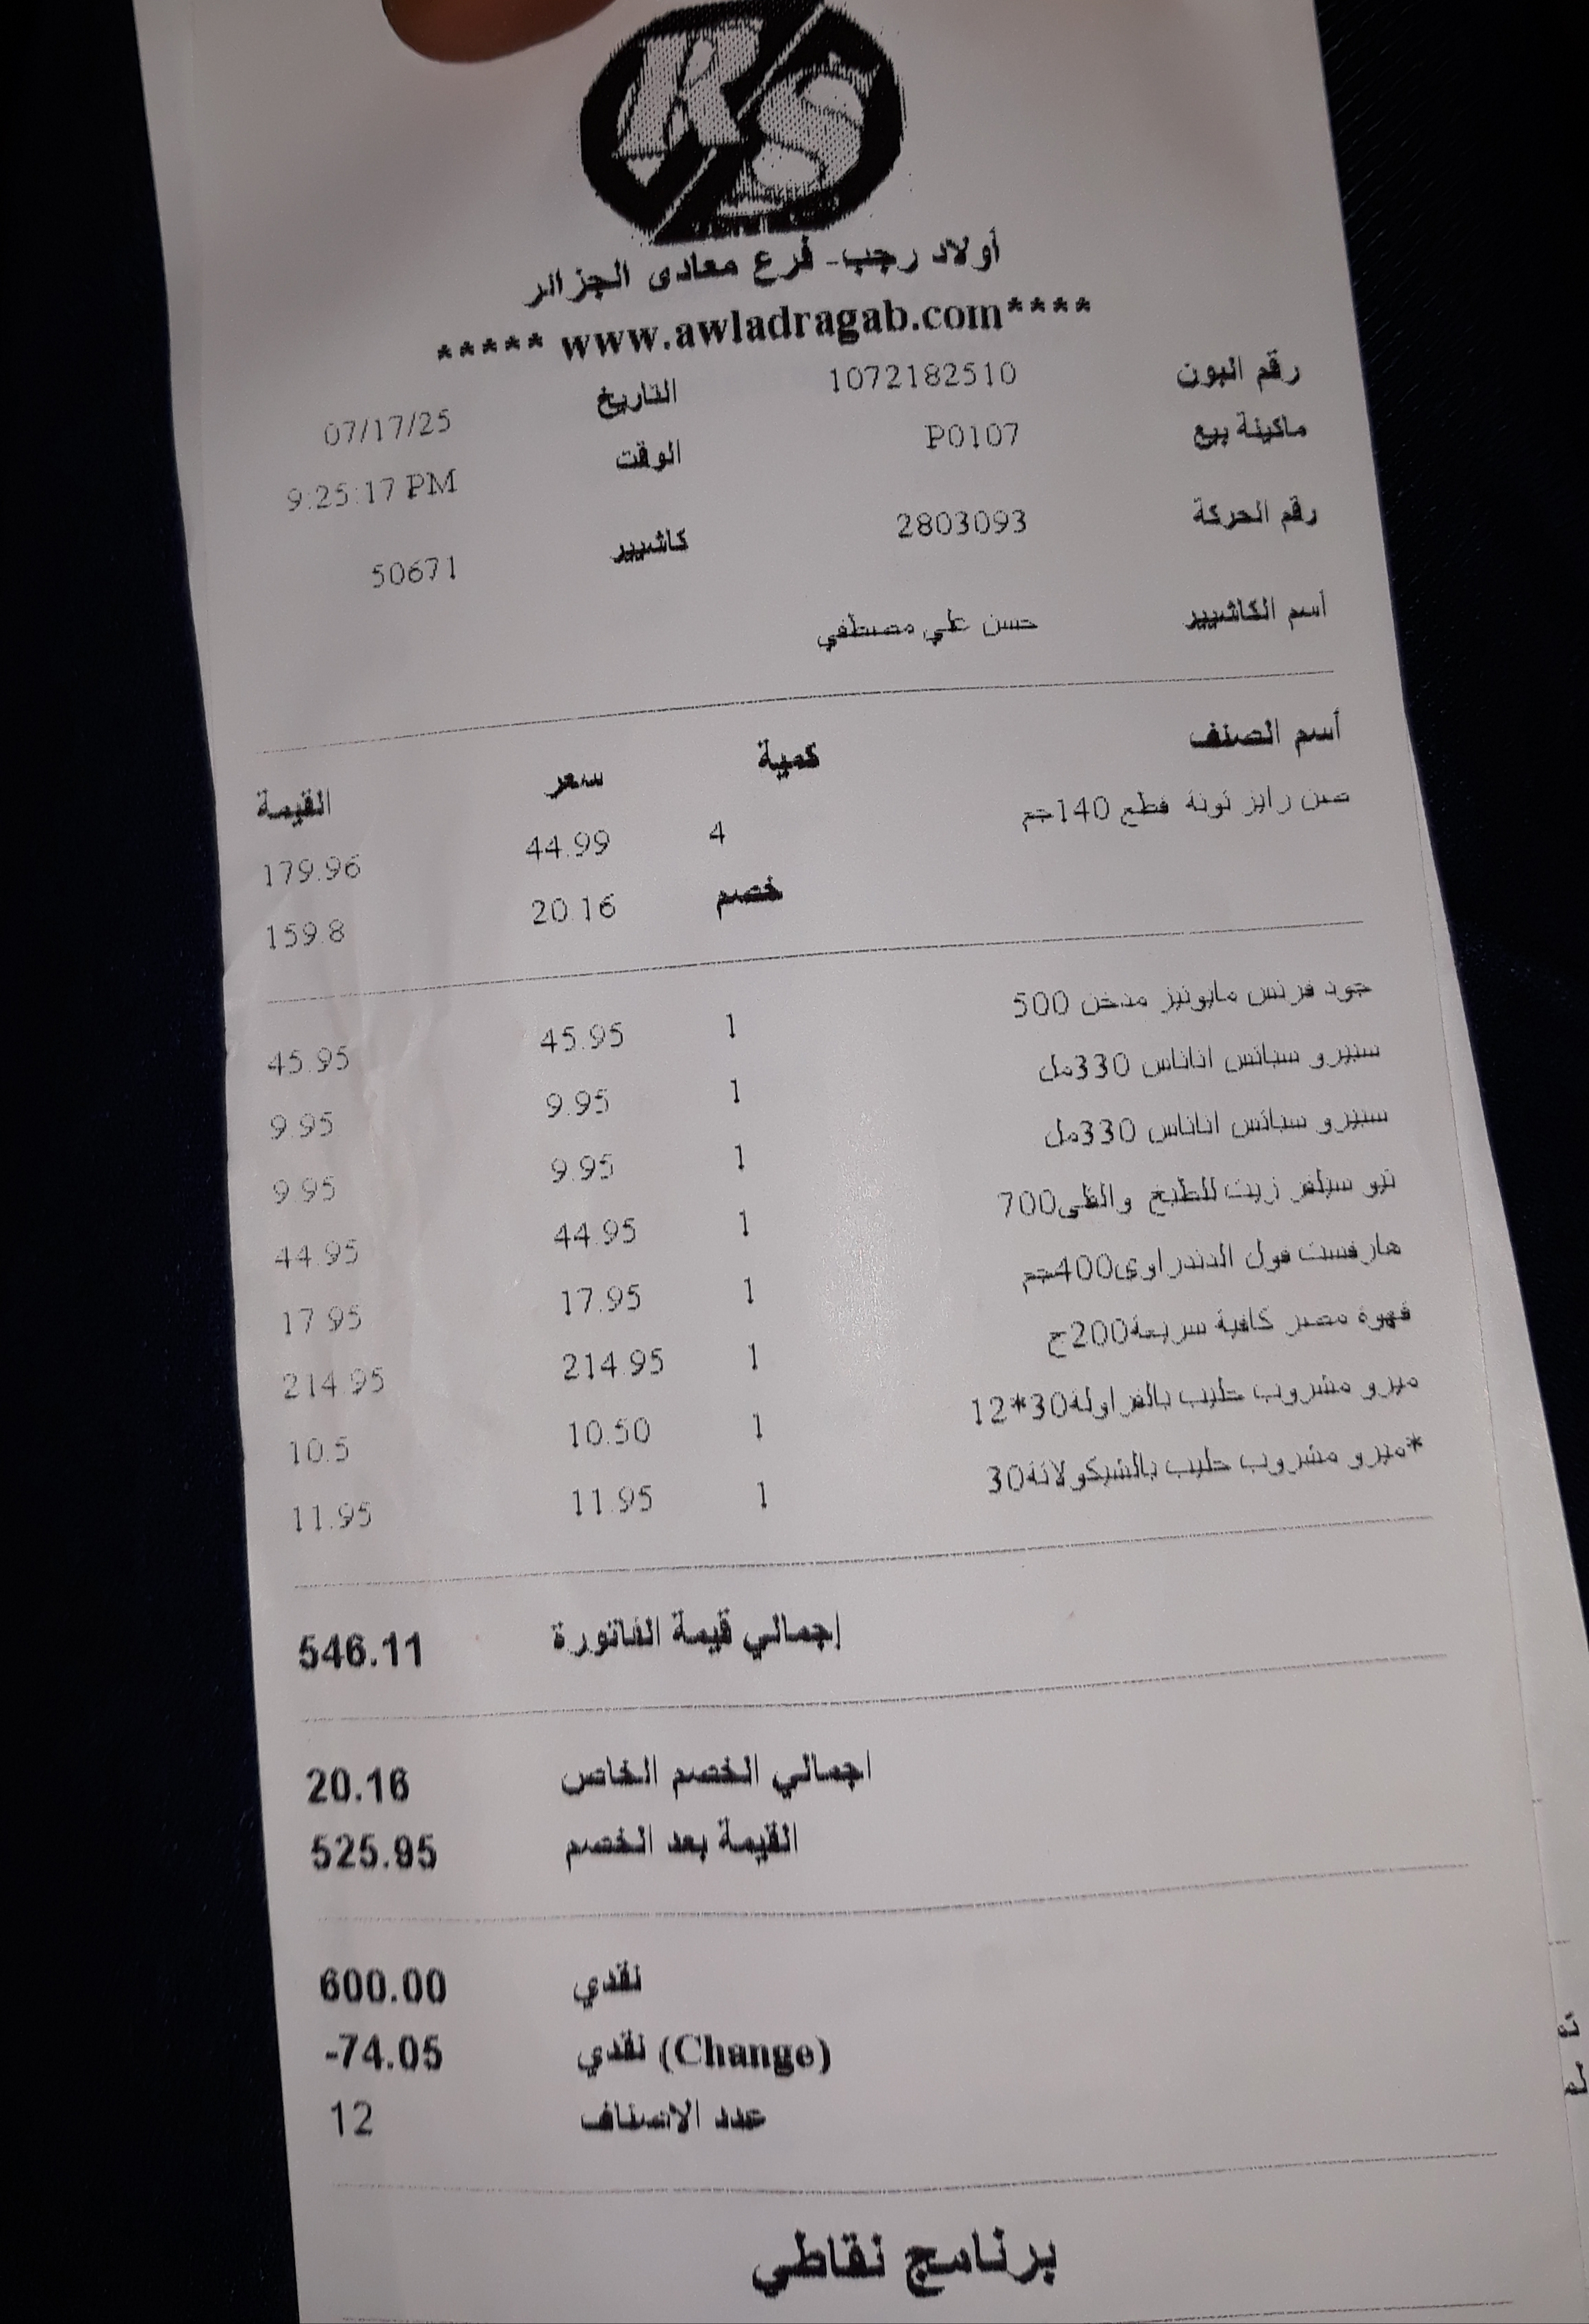 RS
أولاد رجب- فرع معادى الجزائر
***** www.awladragab.com****
رقم البون 1072182510 التاريخ 07/17/25
ماكينة بيع P0107 الوقت 9:25:17 PM
رقم الحركة 2803093 كاشيير 50671
أسم الكاشيير حسن علي مصطفي
أسم الصنف كمية سعر القيمة
صن رايز تونة قطع 140جم 4 44.99 179.96
خصم 20.16 159.8
جود فرنس مايونيز مدخن 500 1 45.95 45.95
سبيرو سباتس اناناس 330مل 1 9.95 9.95
سبيرو سباتس اناناس 330مل 1 9.95 9.95
نيو سيلفر زيت للطبخ والقلى700 1 44.95 44.95
هارفست فول الدندراوى400جم 1 17.95 17.95
قهوة مصر كافية سريعة200ج 1 214.95 214.95
ميرو مشروب حليب بالفراولة30*12 1 10.50 10.5
*ميرو مشروب حليب بالشيكولاتة30 1 11.95 11.95
إجمالي قيمة الفاتورة 546.11
اجمالي الخصم الخاص 20.16
القيمة بعد الخصم 525.95
نقدي 600.00
نقدي (Change) -74.05
عدد الاصناف 12
برنامج نقاطي